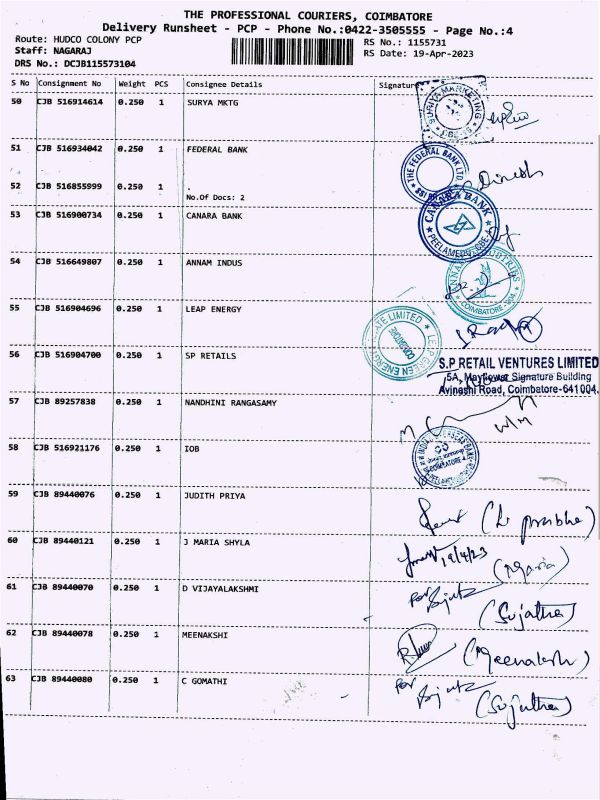 THE PROFESSIONAL COURIERS, COIMBATORE
Delivery Runsheet - PCP - Phone No.:0422-3505555 - Page No.:4
Route: HUDCO COLONY PCP
RS No.: 1155731
Staff: NAGARAJ
RS Date: 19-Apr-2023
DRS No.: DCJB115573104
S No Consignment No Weight PCS Consignee Details Signature
50 CJB 516914614 0.250 1 SURYA MKTG
SURIYA MARKETING
51 CJB 516934042 0.250 1 FEDERAL BANK
THE FEDERAL BANK LTD.
Dinesh
52 CJB 516855999 0.250 1 .
No.Of Docs: 2
53 CJB 516900734 0.250 1 CANARA BANK
CANARA BANK
PEELAMEDU, CBE-4
54 CJB 516649807 0.250 1 ANNAM INDUS
COIMBATORE
55 CJB 516904696 0.250 1 LEAP ENERGY
LEAP GREEN ENERGY PRIVATE LIMITED
COIMBATORE
56 CJB 516904700 0.250 1 SP RETAILS
S.P RETAIL VENTURES LIMITED
5A, Mayflower Signature Building
Avinashi Road, Coimbatore-641004.
57 CJB 89257838 0.250 1 NANDHINI RANGASAMY
58 CJB 516921176 0.250 1 IOB
INDIAN OVERSEAS BANK
59 CJB 89440076 0.250 1 JUDITH PRIYA
60 CJB 89440121 0.250 1 J MARIA SHYLA
19/4/23 (Maria)
61 CJB 89440070 0.250 1 D VIJAYALAKSHMI
for Sujatha
(Sujatha)
62 CJB 89440078 0.250 1 MEENAKSHI
(Meenakshi)
63 CJB 89440080 0.250 1 C GOMATHI
for Sujatha
(Sujatha)